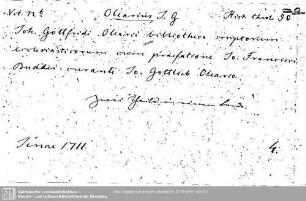 Olearius J. G. Hist. eccl.
Joh. Gottfridi Olearii bibliotheca scriptorum
ecclesiasticorum cum praefatione Jo. Francisci
Buddei curante Jo. Gottlieb Oleario.
Zwei Theile in einem Band.
Jenae 1711. 4.
Sächsische Landesbibliothek -
Staats- und Universitätsbibliothek Dresden